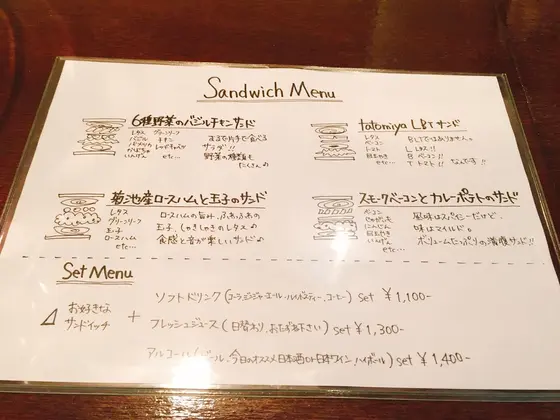 Sandwich Menu
6種野菜のバジルチキンサンド
レタス グリーンリーフ
バジル チキン
パプリカ
かぼちゃ
いんげん
etc…
まるで片手で食べる
サラダ!!
野菜の種類も
たくさん♪
tatomiya L&T サンド
レタス
ベーコン
トマト
目玉やき
etc…
BLTではありません。
L レタス!!
B ベーコン!!
T トマト!! なんです!!
菊池産ロースハムと玉子のサンド
レタス
グリーンリーフ
玉子
ロースハム
etc…
ロースハムの旨味、ふわふわの
玉子、しゃきしゃきのレタス♪
食感と音が楽しいサンド♪
スモークベーコンとカレーポテトのサンド
ベーコン
じゃがいも
にんじん
目玉やき
いんげん
etc…
風味はスパイシーだけど、
味はマイルド。
ボリュームたっぷりの満腹サンド!!
Set Menu
お好きな
サンドイッチ
+
ソフトドリンク(コーラ、ジンジャーエール、ハイボスティー、コーヒー) set ¥1,100-
フレッシュジュース(日替わり、おたずね下さい) set ¥1,300-
アルコール(ビール、今日のオススメ日本酒or日本ワイン、ハイボール) set ¥1,400-